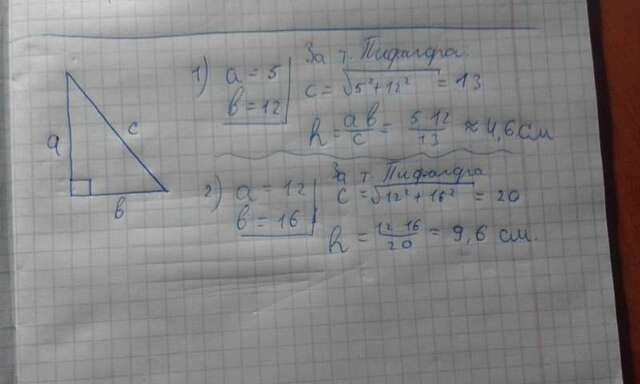 1) a = 5
b = 12
За т. Піфагора
c = √5²+12² = 13
h = ab/c = 5·12/13 ≈ 4,6 см
a
c
b
2) a = 12
b = 16
За т. Піфагора
c = √12²+16² = 20
h = 12·16/20 = 9,6 см.